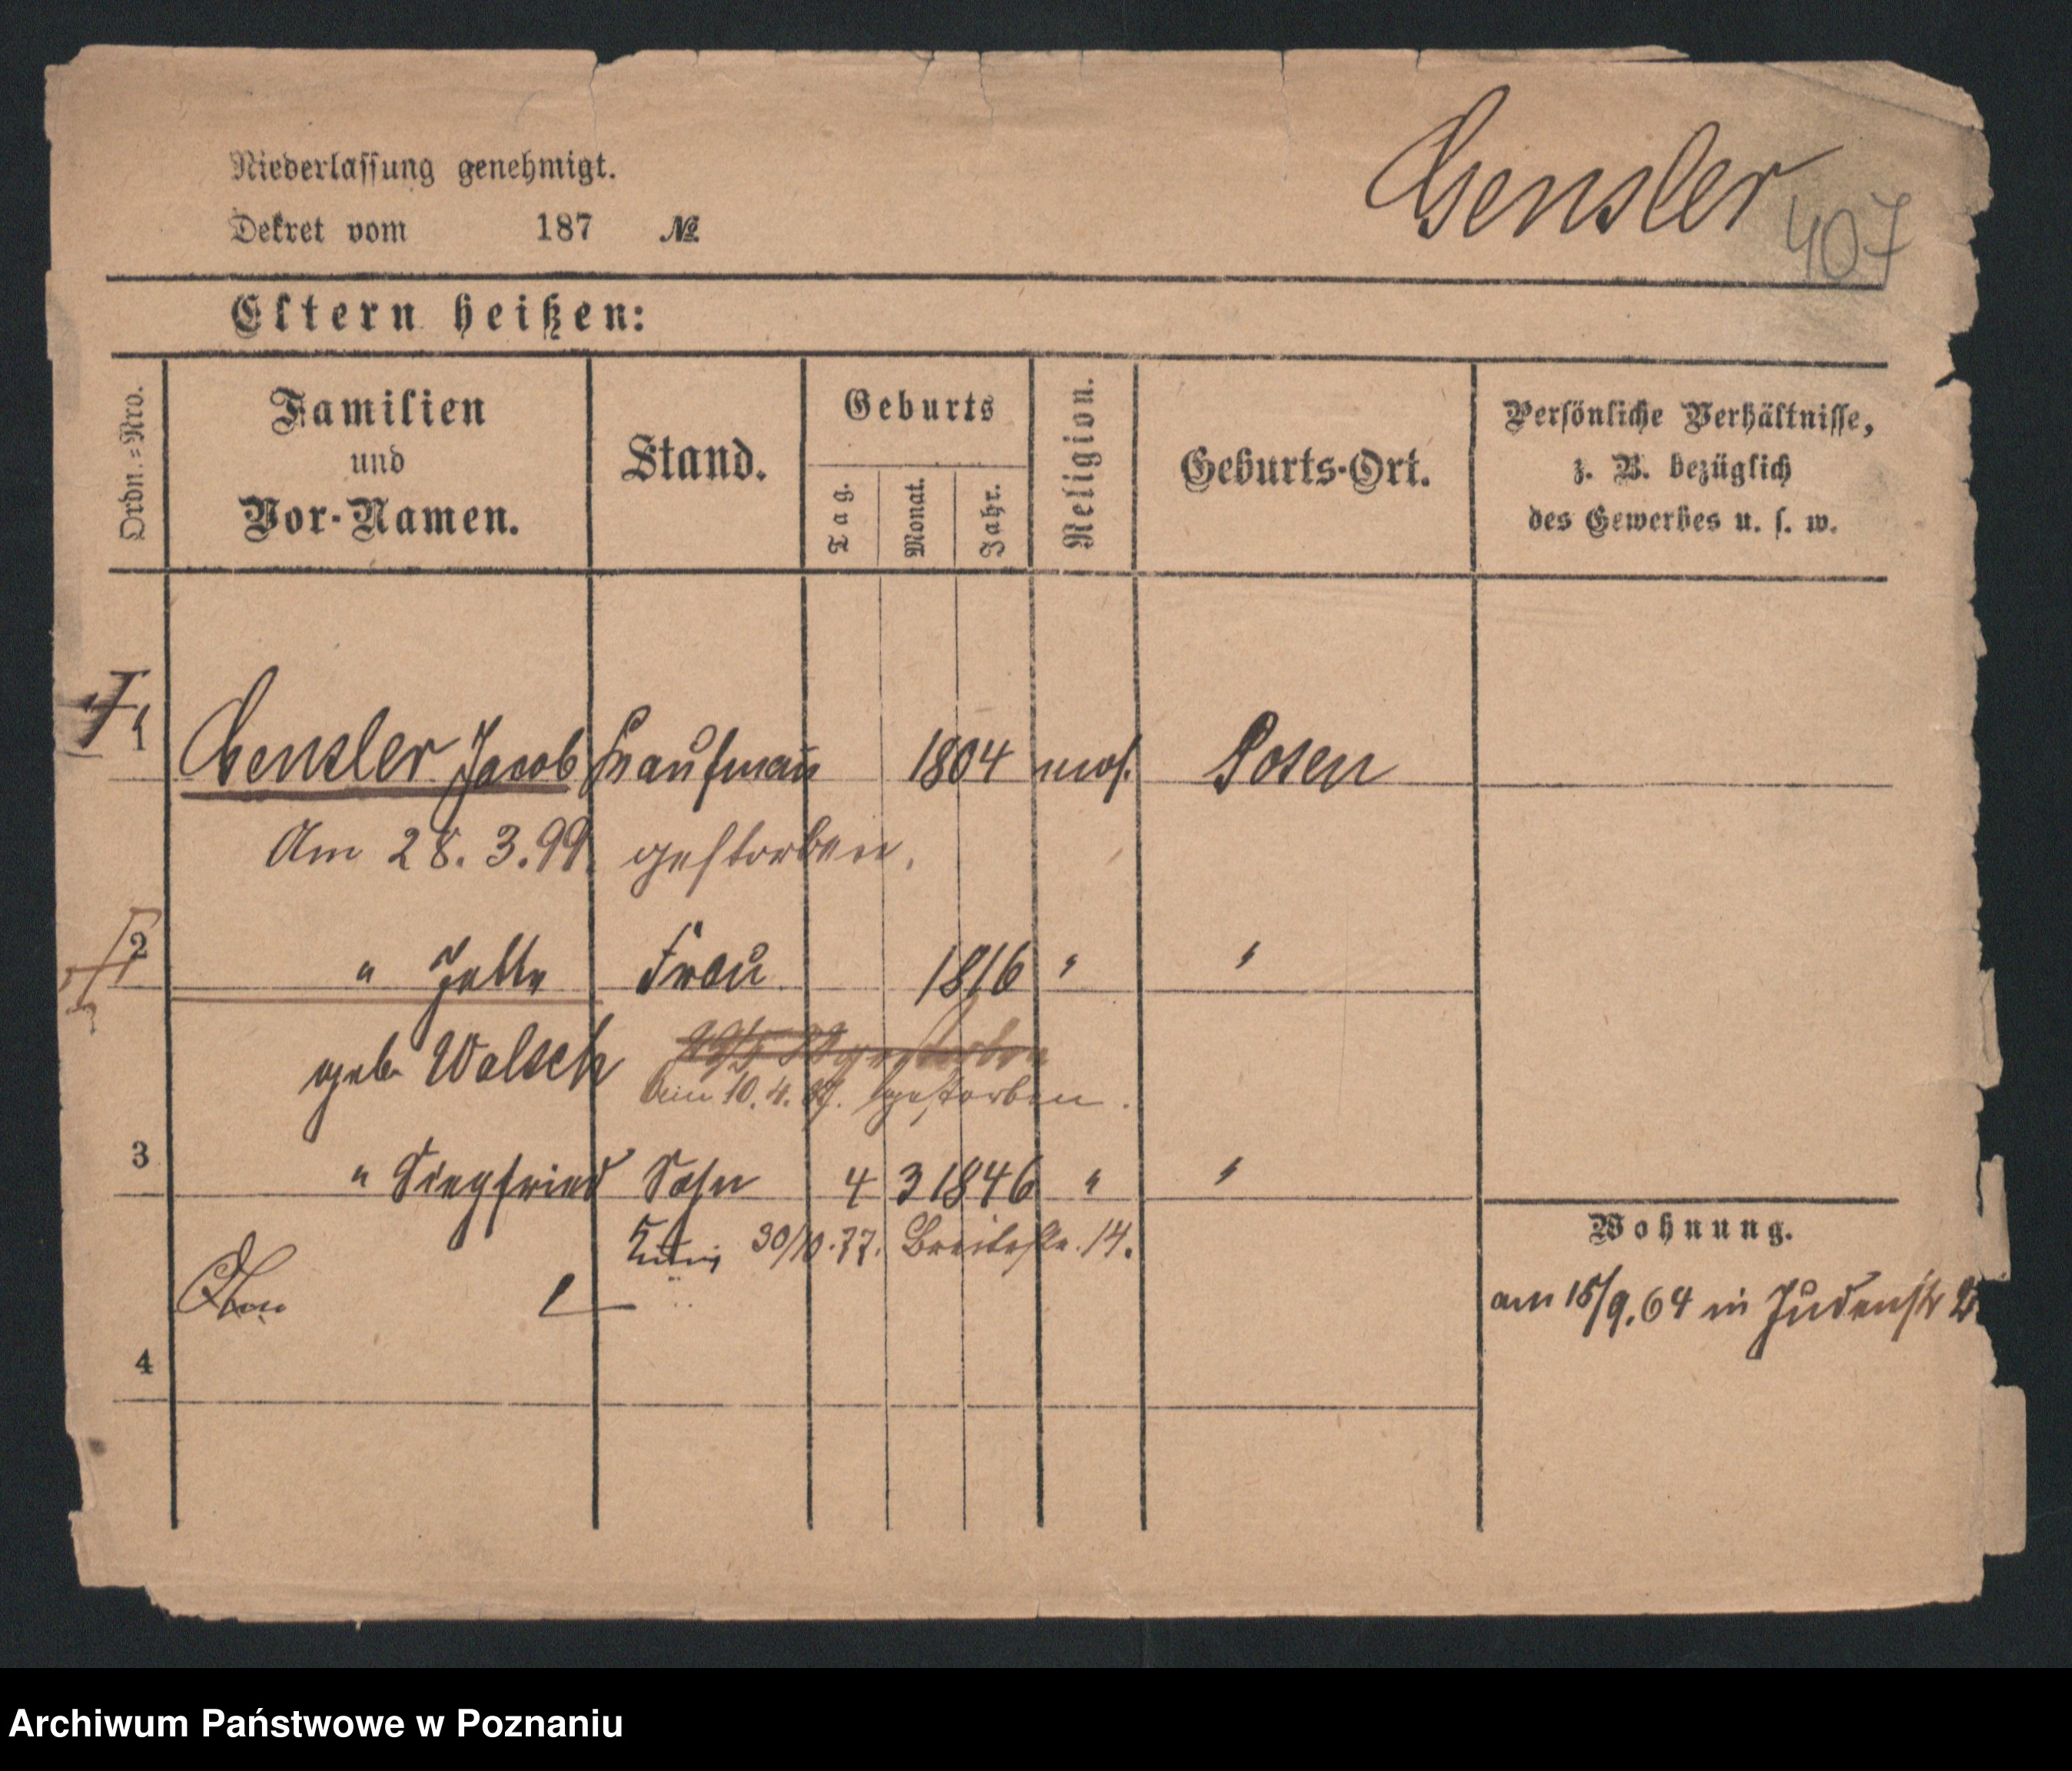 Niederlassung genehmigt.
Gensler
407
Dekret vom 187 №
Eltern heißen:
Ordn.=Nro.
Familien und Vor-Namen.
Stand.
Geburts
Tag.
Monat.
Jahr.
Religion.
Geburts-Ort.
Persönliche Verhältnisse,
z. B. bezüglich
des Gewerbes u. s. w.
1 Gensler Jacob Kaufmañ 1804 mos. Posen
Am 28.3.99. gestorben.
2 " Jette Frau 1816 " "
geb. Walsch gestorben
Am 10.4. gestorben.
3 " Siegfried Sohn 4 3 1846 " "
30/10.77. Breitestr. 14.
Wohnung.
am 15/9.64 in Judenstr
4
Archiwum Państwowe w Poznaniu